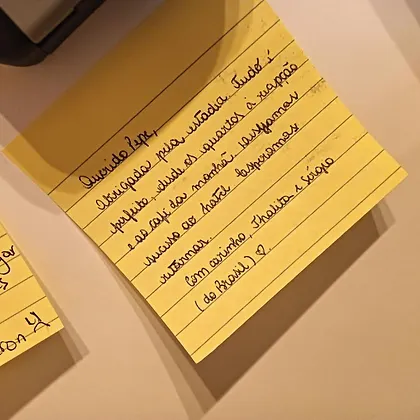 Querido Pepe,
Obrigada pela estadia. Tudo é
perfeito, desde os quartos a recepção
e ao café da manhã. Desejamos
sucesso ao hotel. Esperamos
retornar.
Com carinho, Thalita e Sérgio
(do Brasil) ♡.